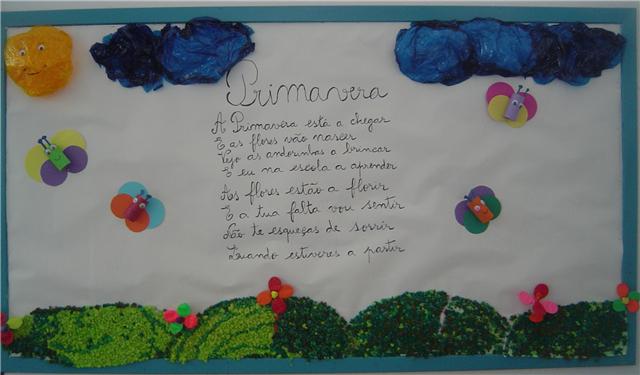 Primavera
A Primavera está a chegar
E as flores vão nascer
Vejo as andorinhas a brincar
E eu na escola a aprender
As flores estão a florir
E a tua falta vou sentir
Não te esqueças de sorrir
Quando estiveres a partir